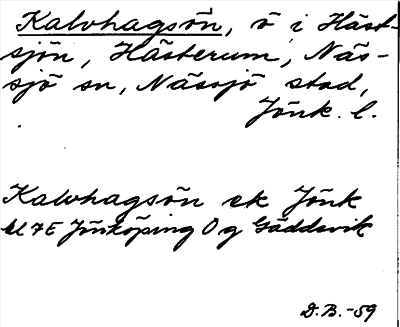 Kalvhagsön, ö i Häst-
sjön, Hästerum, Näs-
sjö sn, Nässjö stad,
Jönk. l.
Kalvhagsön ek Jönk
bl 7E Jönköping O g Gäddevik
D.B.-59